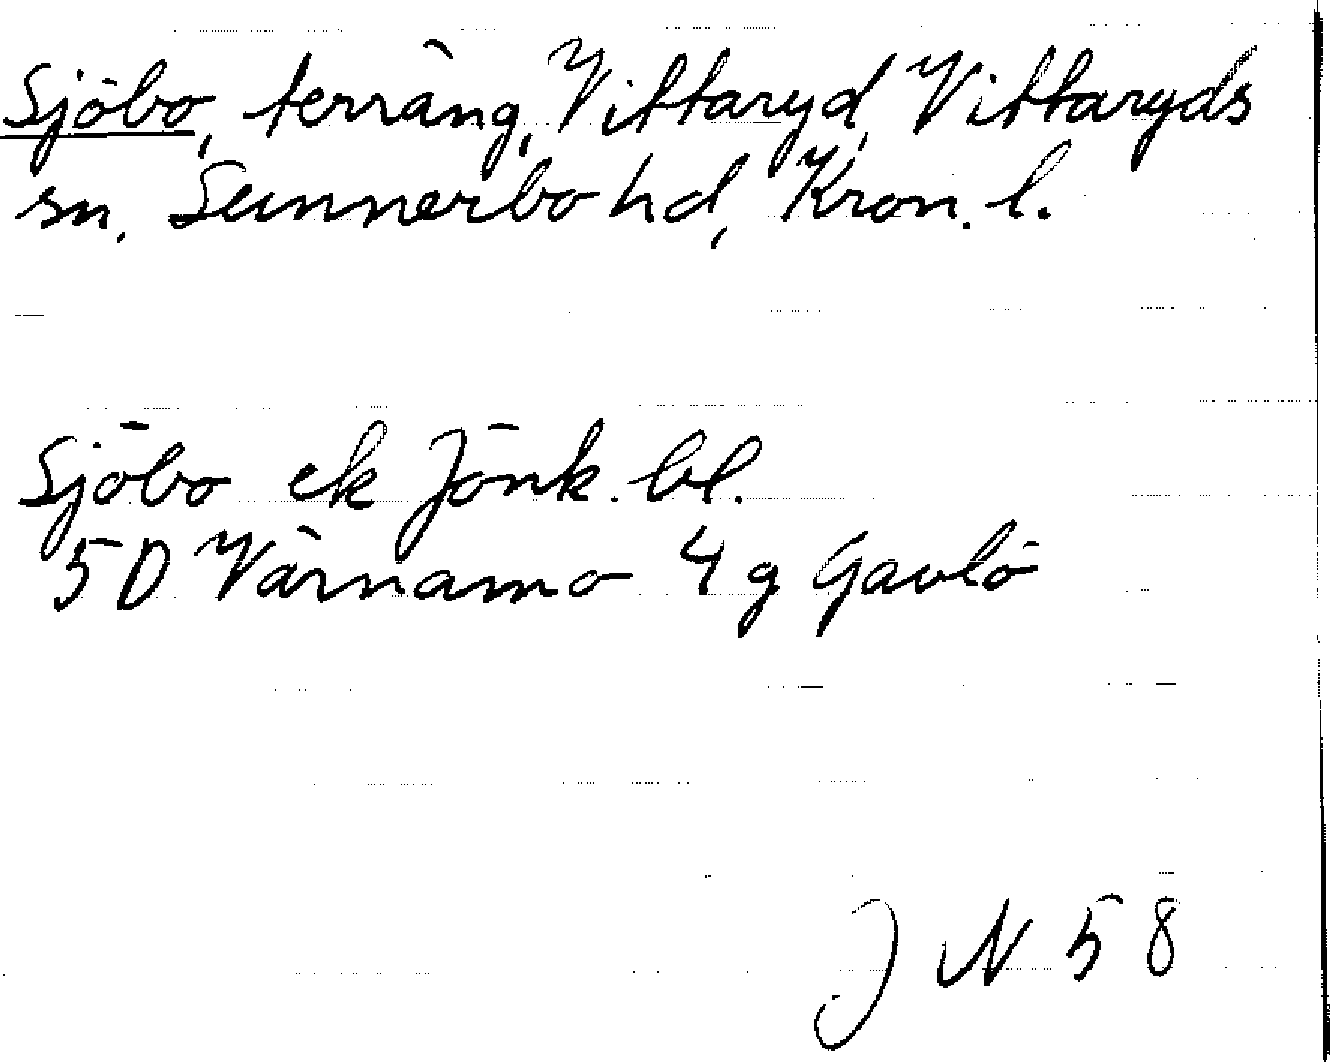 Sjöbo, terräng, Vittaryd, Vittaryds
sn, Sunnerbo hd, Kron. l.
Sjöbo ek Jönk. bl.
5D Värnamo 4 g Gavlö
J N 58